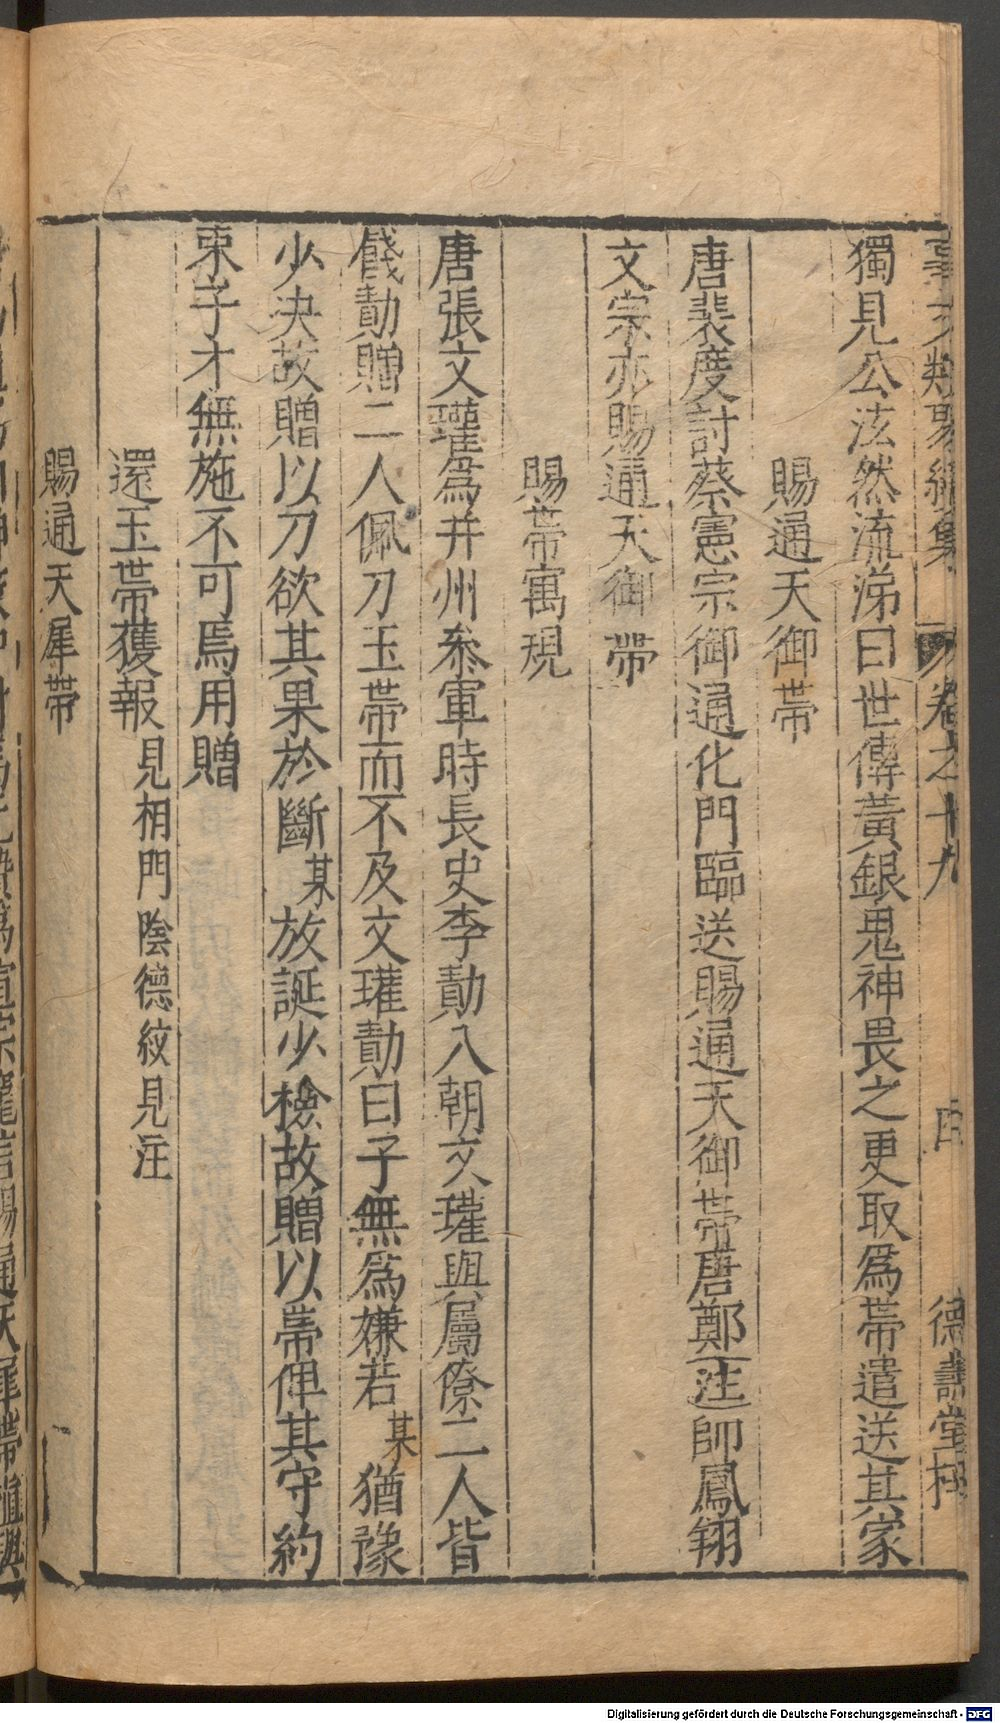 事文類聚續集 卷之十九 德壽堂梓
獨見公泫然流涕曰世傳黃銀鬼神畏之更取爲帶遣送其家
賜通天御帶
唐裴度討蔡憲宗御通化門臨送賜通天御帶唐鄭注師鳳翔
文宗亦賜通天御帶
賜帶寓規
唐張文瓘爲并州叅軍時長史李勣入朝文瓘與属僚二人皆
餞勣贈二人佩刀玉帶而不及文瓘勣曰子無爲嫌若某猶豫
少决故贈以刀欲其果於斷某放誕少檢故贈以帶俾其守約
束子才無施不可焉用贈
還玉帶獲報見相門陰德紋見注
賜通天犀帶
Digitalisierung gefördert durch die Deutsche Forschungsgemeinschaft - DFG